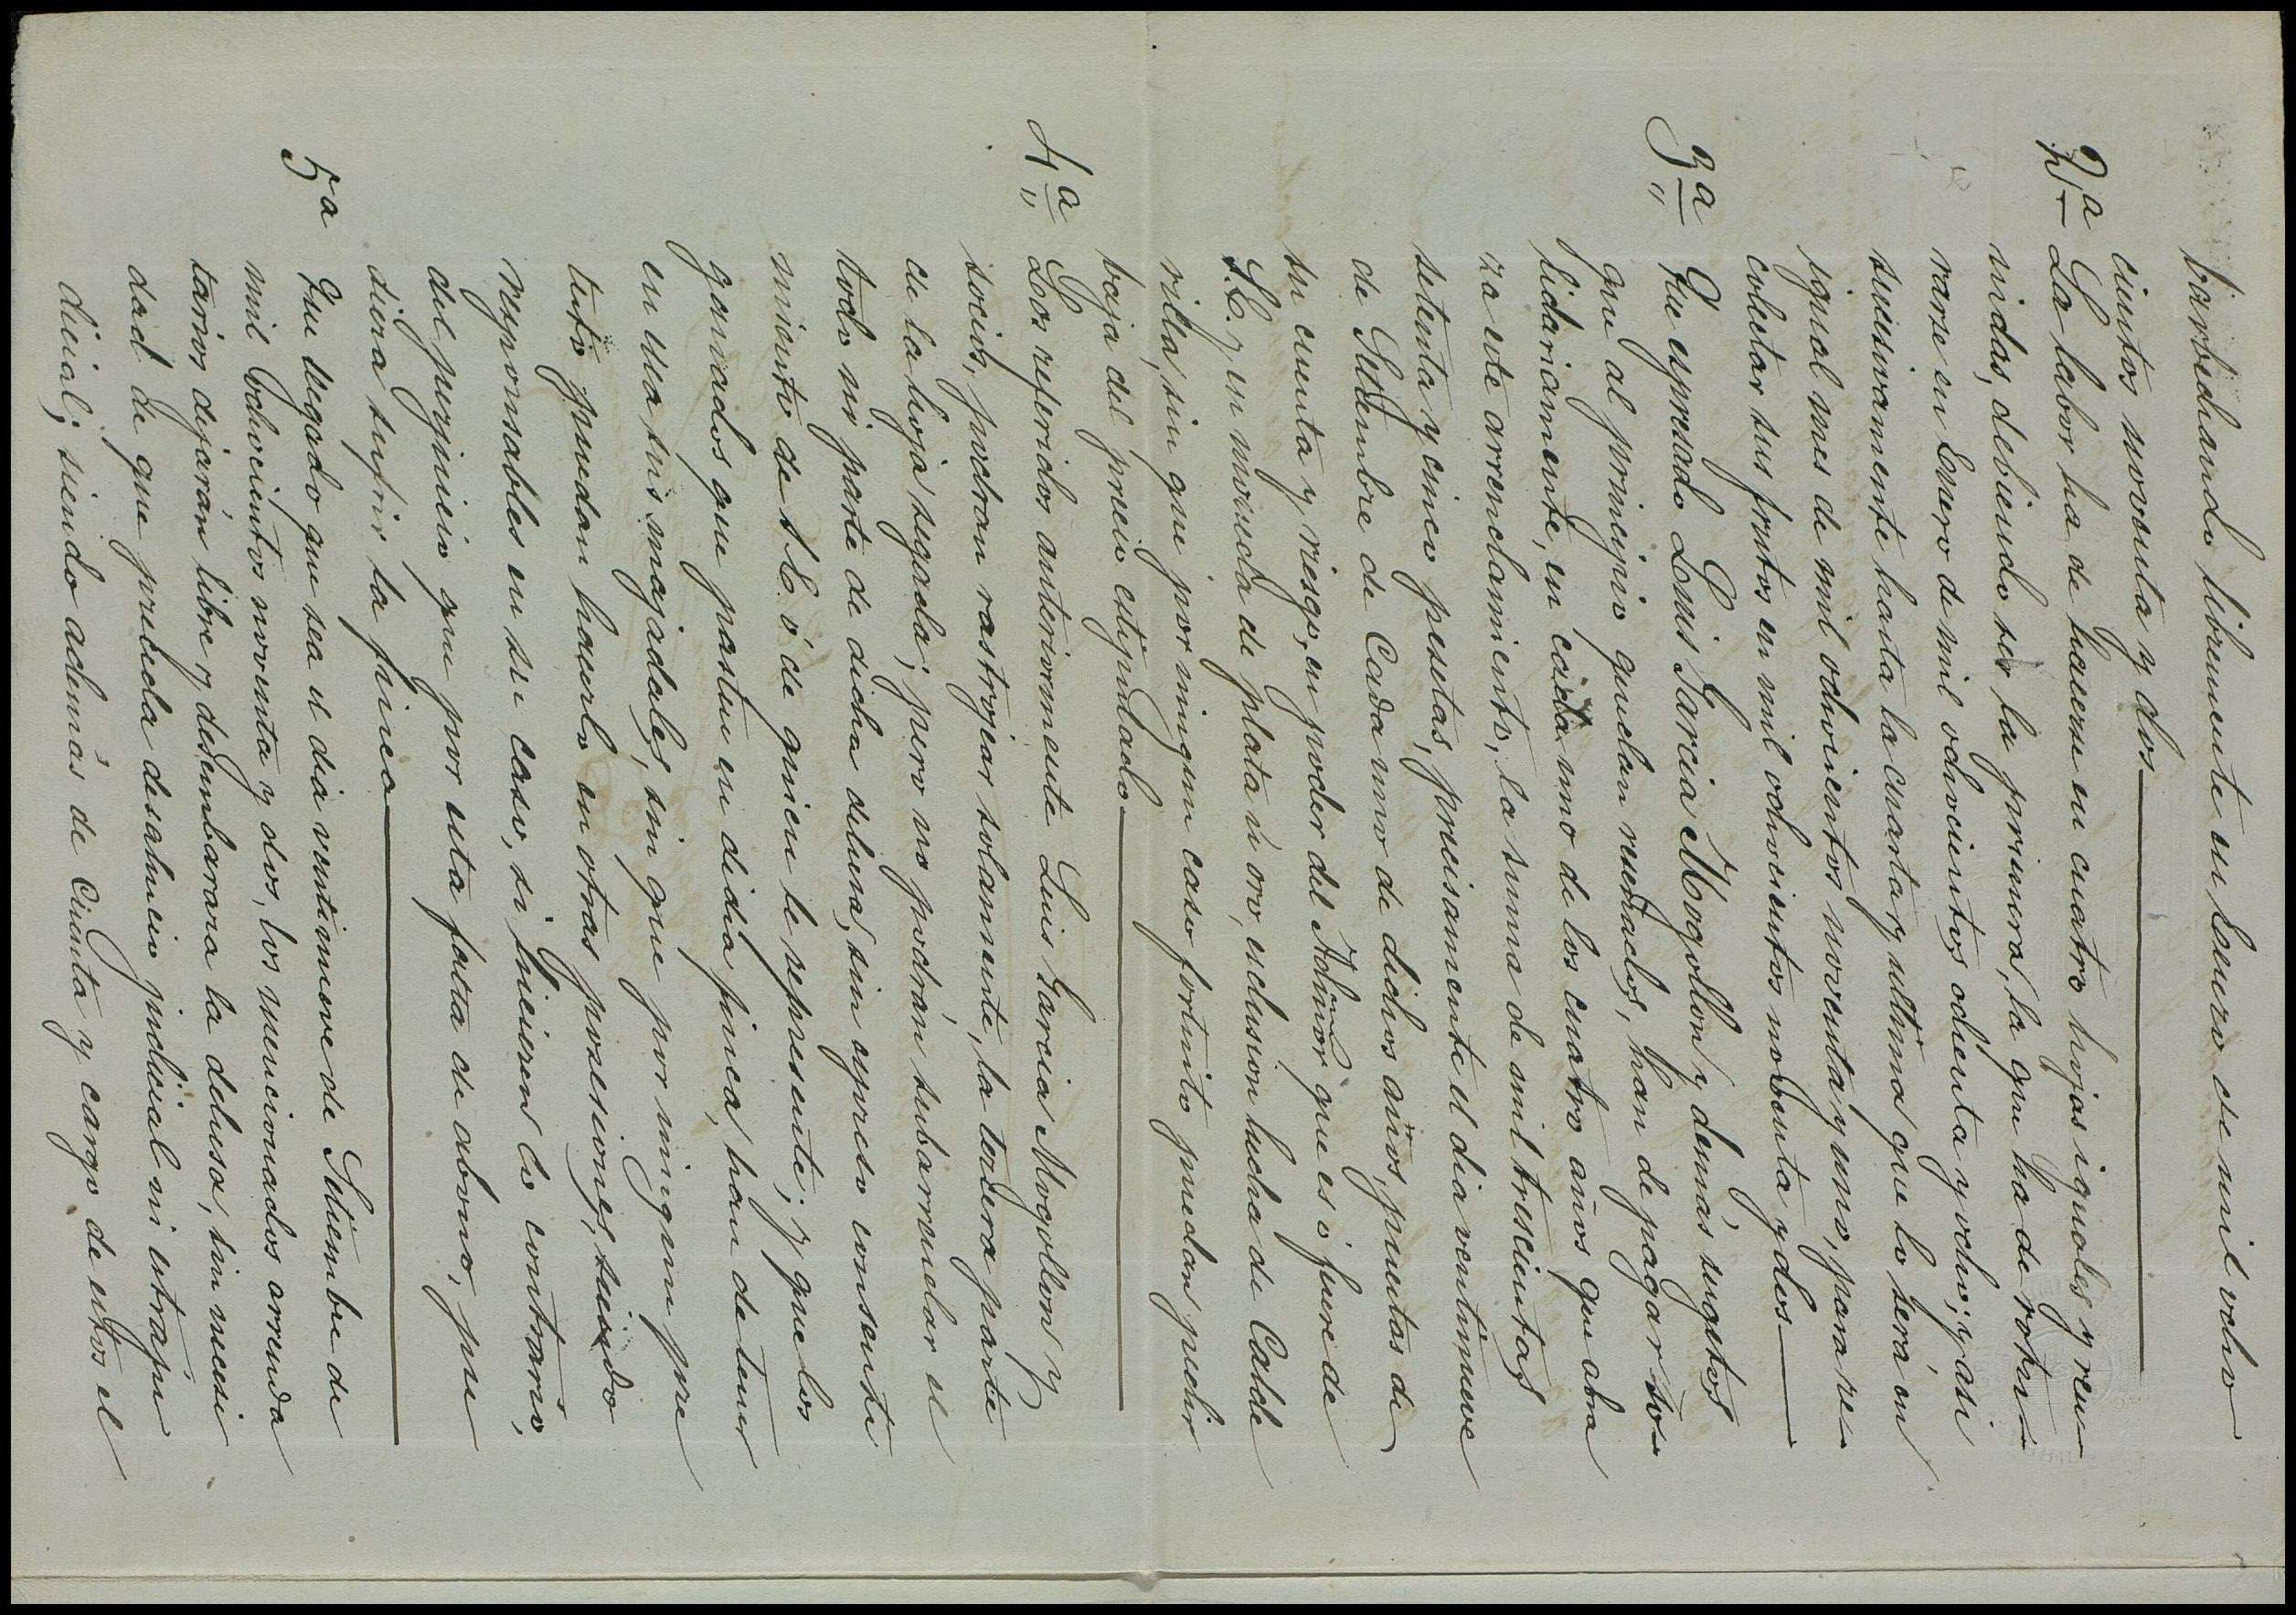 barbechando libremente en Enero de mil ocho
cientos noventa y dos
2ª La labor ha de hacerse en cuatro hojas iguales y reu-
nidas, debiendo ser la primera, la que ha de rotu-
rarse en Enero de mil ochocientos ochenta y ocho; y asi
sucesivamente hasta la cuarta y ultima que lo será en
igual mes de mil ochocientos noventa y uno, para re-
colectar sus frutos en mil ochocientos nobenta y dos
3ª Que espresado Luis Garcia Mogollon y demás sugetos
que al principio quedan reseñados, han de pagar so-
lidariamente, en cada uno de los cuatro años que abra
za este arrendamiento, la suma de mil trescientas
setenta y cinco pesetas, precisamente el dia ventinueve
de Setiembre de Cada uno de dichos años, puestas de
su cuenta y riesgo, en poder del Admor que es ó fuere de
S.E. y en moneda de plata ú oro, esclusion hecha de Calde
rilla, sin que por ningun caso fortuito puedan pedir
baja del precio estipulado
4ª Los referidos anteriormente Luis Garcia Mogollon y
socios, podran rastrojear solamente, la tercera parte
de la hoja segada; pero no podrán subarrendar el
todo ni parte de dicha dehesa, sin espreso consenti
miento de S.E. ó de quien le represente; y que los
ganados que pasten en dicha finca, han de tener
en ella sus majadales, sin que por ningun pre
testo puedan hacerlo en otras posesiones, siendo
responsables en su caso, si hicieren lo contrario,
del perjuicio que por esta falta de abono, pu
diera sufrir la finca
5ª Que llegado que sea el dia ventinueve de Setiembre de
mil ochocientos noventa y dos, los mencionados arrenda
tarios dejarán libre y desembarazada la dehesa, sin necesi
dad de que preceda desahucio judicial ni estraju
dicial; siendo además de Cuenta y cargo de estos el